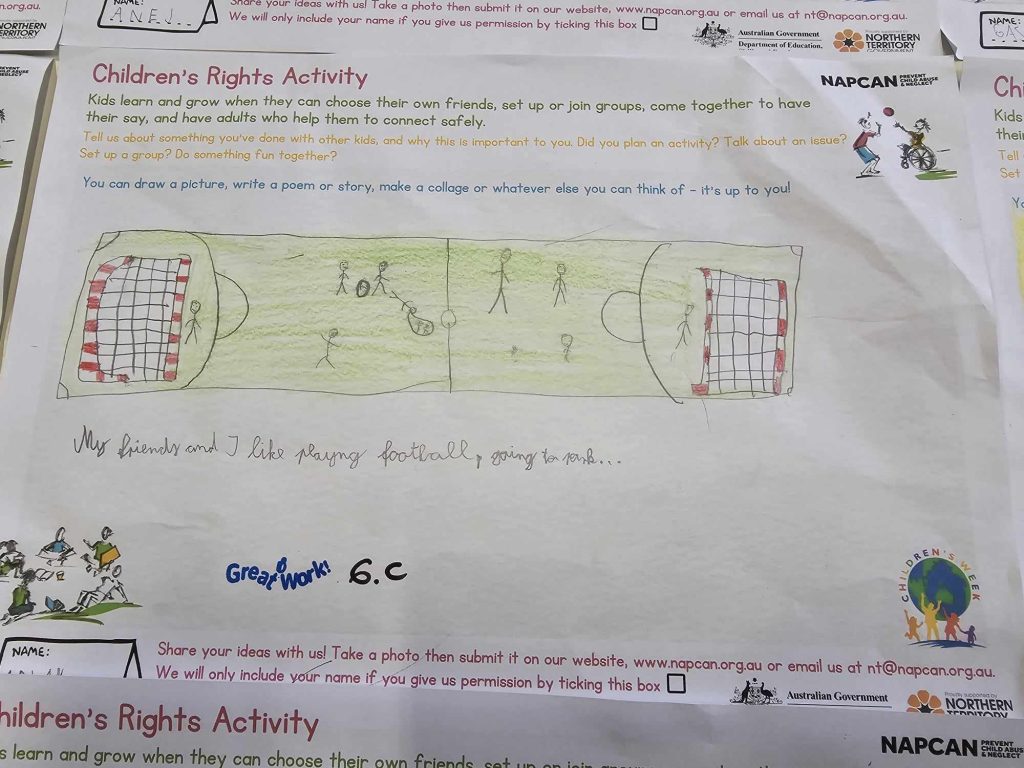 ANEJ..
Share your ideas with us! Take a photo then submit it on our website, www.napcan.org.au or email us at nt@napcan.org.au.
We will only include your name if you give us permission by ticking this box
Australian Government
Department of Education,
Proudly supported by
NORTHERN
TERRITORY
NAME:
n.org.au.
NORTHERN
TERRITORY
Children's Rights Activity
NAPCAN PREVENT
CHILD ABUSE
& NEGLECT
Kids learn and grow when they can choose their own friends, set up or join groups, come together to have
their say, and have adults who help them to connect safely.
Tell us about something you've done with other kids, and why this is important to you. Did you plan an activity? Talk about an issue?
Set up a group? Do something fun together?
You can draw a picture, write a poem or story, make a collage or whatever else you can think of - it's up to you!
My friends and I like playng football, going to park...
Great Work! 6.C
CHILDREN'S WEEK
NAME:
Share your ideas with us! Take a photo then submit it on our website, www.napcan.org.au or email us at nt@napcan.org.au.
We will only include your name if you give us permission by ticking this box
Australian Government
Proudly supported by
NORTHERN
TERRITORY
hildren's Rights Activity
NAPCAN PREVENT
CHILD ABUSE
& NEGLECT
s learn and grow when they can choose their own friends, set up or join
Chi
Kids
their
Tell
Set